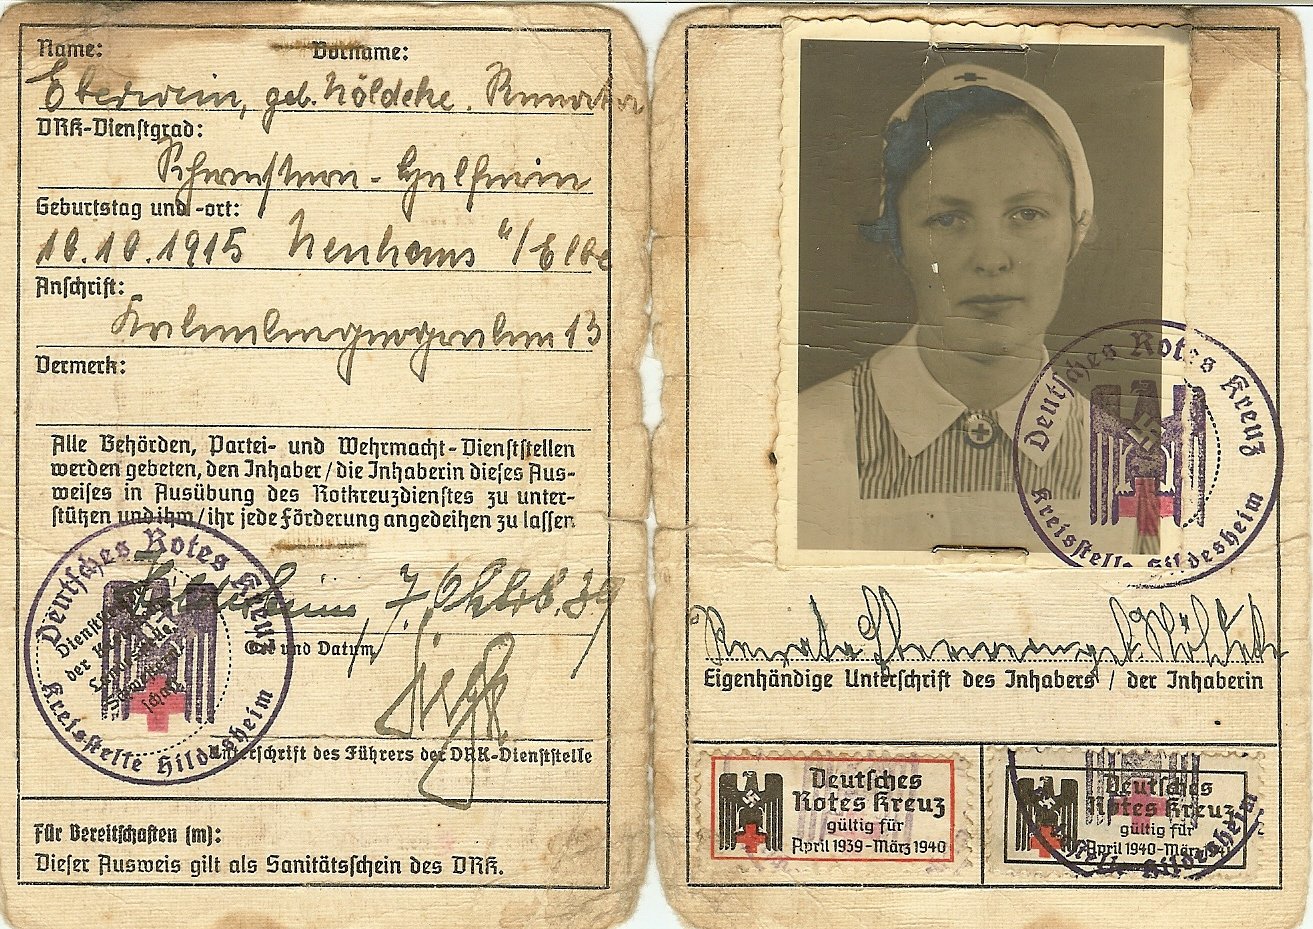 Name: Vorname:
Eberwein, geb. Nöldeke, Renata
DRK-Dienstgrad:
Schwestern-Helferin
Geburtstag und -ort:
10.10.1915 Neuhaus a/Elbe
Anschrift:
13
Vermerk:
Alle Behörden, Partei- und Wehrmacht-Dienststellen
werden gebeten, den Inhaber/die Inhaberin dieses Aus-
weises in Ausübung des Rotkreuzdienstes zu unter-
stützen und ihm/ihr jede Förderung angedeihen zu lassen
Hildesheim, 7. Oktob. 39
Ort und Datum
Unterschrift des Führers der DRK-Dienststelle
Deutsches Rotes Kreuz
Kreisstelle Hildesheim
Für Bereitschaften (m):
Dieser Ausweis gilt als Sanitätsschein des DRK.
Deutsches Rotes Kreuz
Kreisstelle Hildesheim
Renata Eberwein geb. Nöldeke
Eigenhändige Unterschrift des Inhabers / der Inhaberin
Deutsches
Rotes Kreuz
gültig für
April 1939-März 1940
Deutsches
Rotes Kreuz
gültig für
April 1940-März 1941
Hildesheim